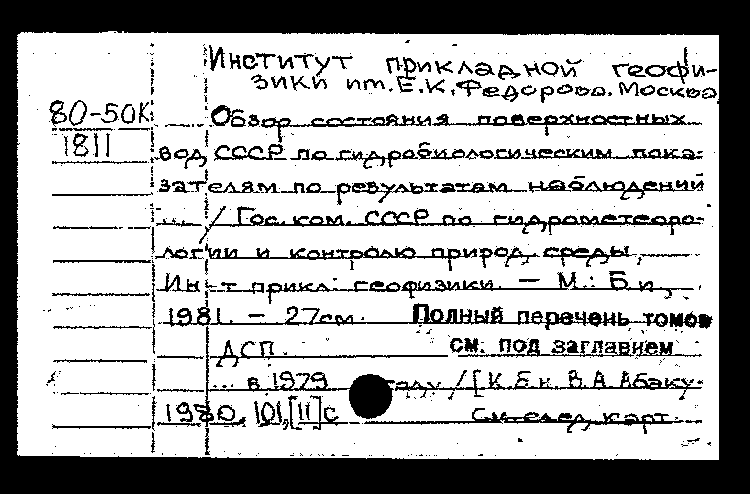 Институт прикладной геофи-
зики им. Е.К. Федорова. Москва
80-50К
1811
Обзор состояния поверхностных
вод СССР по гидробиологическим пока-
зателям по результатам наблюдений
... / Гос. ком. СССР по гидрометеоро-
логии и контролю природ. среды,
Ин-т прикл. геофизики. – М.: Б.и.,
1981. – 27см. Полный перечень томов
ДСП. см. под заглавием
... в 1979 году / [К.б.н. В.А. Абаку-
1980, 101,[11]с См. след. карт.